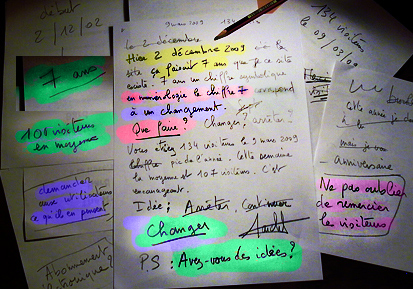 début
2/12/02
7 ans
100 visiteurs
en moyenne
demander
aux utilisateurs
ce qu'ils en pensent
Abonnement
9 mars 2009
Le 2 décembre
Hier 2 décembre 2009
site ça faisait 7 ans que ce site
existe. 7 ans un chiffre symbolique
en numérologie le chiffre 7 correspond
à un changement.
Que faire? Changer? arrêter?
Vous étiez 134 visiteurs le 9 mars 2009
chiffre pic de l'année. Cette semaine
la moyenne est 107 visiteurs. C'est
encourageant.
Idée: Arrêter. Continuer
Changer
P.S : Avez-vous des idées?
134 visiteurs
le 09/03/09
cette année
mais
anniversaire
Ne pas oublier
de remercier
les visiteurs